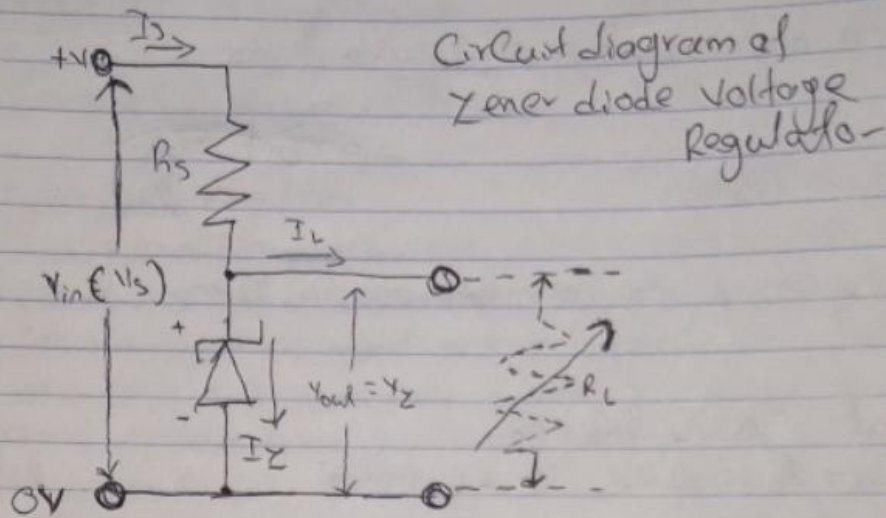 Is
+V
Circuit diagram of
Zener diode Voltage
Regulato-
Rs
IL
Vin (Vs)
+
Vout = Vz
RL
-
IZ
0V